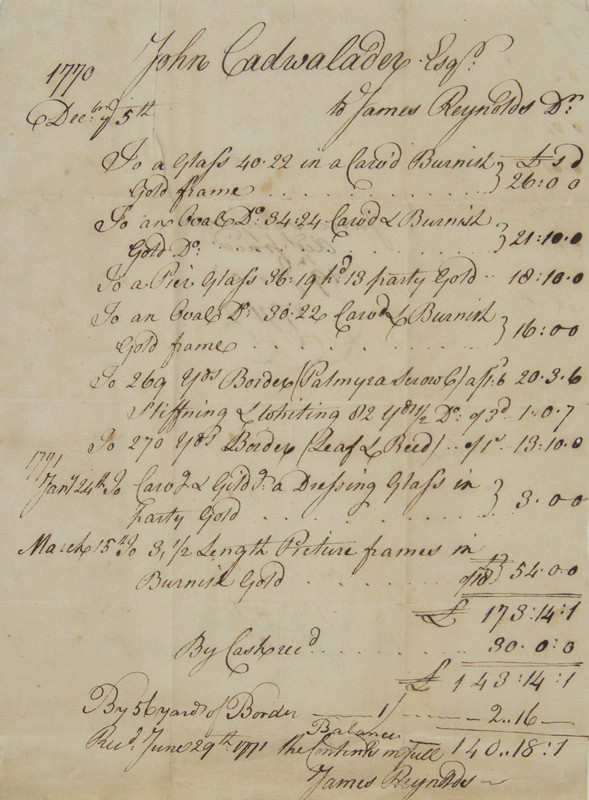 1770
John Cadwalader Esqr.
Decbr. ye 5th
to James Reynolds Dr.
To a Glass 40.22 in a Carv'd Burnish £ s d
Gold frame . . . . . 26:0 0
To an Oval Do. 34:24 Carv'd & Burnish
Gold Do. . . . . . 21:10.0
To a Pier Glass 36:19 hd 13 party Gold .. 18:10.0
To an Oval Do. 30.22 Carvd & Burnish
Gold frame . . . . . 16:00
To 269 Yds Border (Palmyra Scrow) 20.3.6
Stiffning & Whiting 82 Yds 1/2 Do. @ 3d 1.0.7
To 270 Yds Border (Leaf & Reed) .. @ 1s 13:10.0
1771
Jany 24th To Carvg & Gildg a Dressing Glass in
party Gold . . . . . 3.00
March 15th To 3, 1/2 Length Picture frames in
Burnish Gold . . . . . @ £18 54.0.0
£ 173:14:1
By Cash recd . . . . . 30.0:0
£ 143:14:1
By 56 yards of Border 1/ 2..16
Recd. June 29th 1771 the Balance
Contents in full 140..18:1
James Reynolds